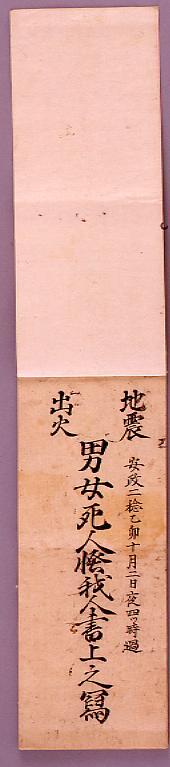 地震
安政二稔乙卯十月二日夜四ツ時過
男女死人怪我人書上之寫
出火